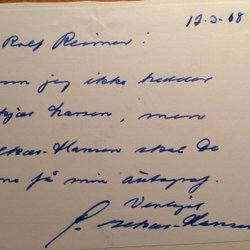 12-3-68
Rolf Reimer!
om jeg ikke hedder
kjær Larsen, men
ekær-Hansen skal De
ne få min autograf.
Venligst
P. ekær-Hansen